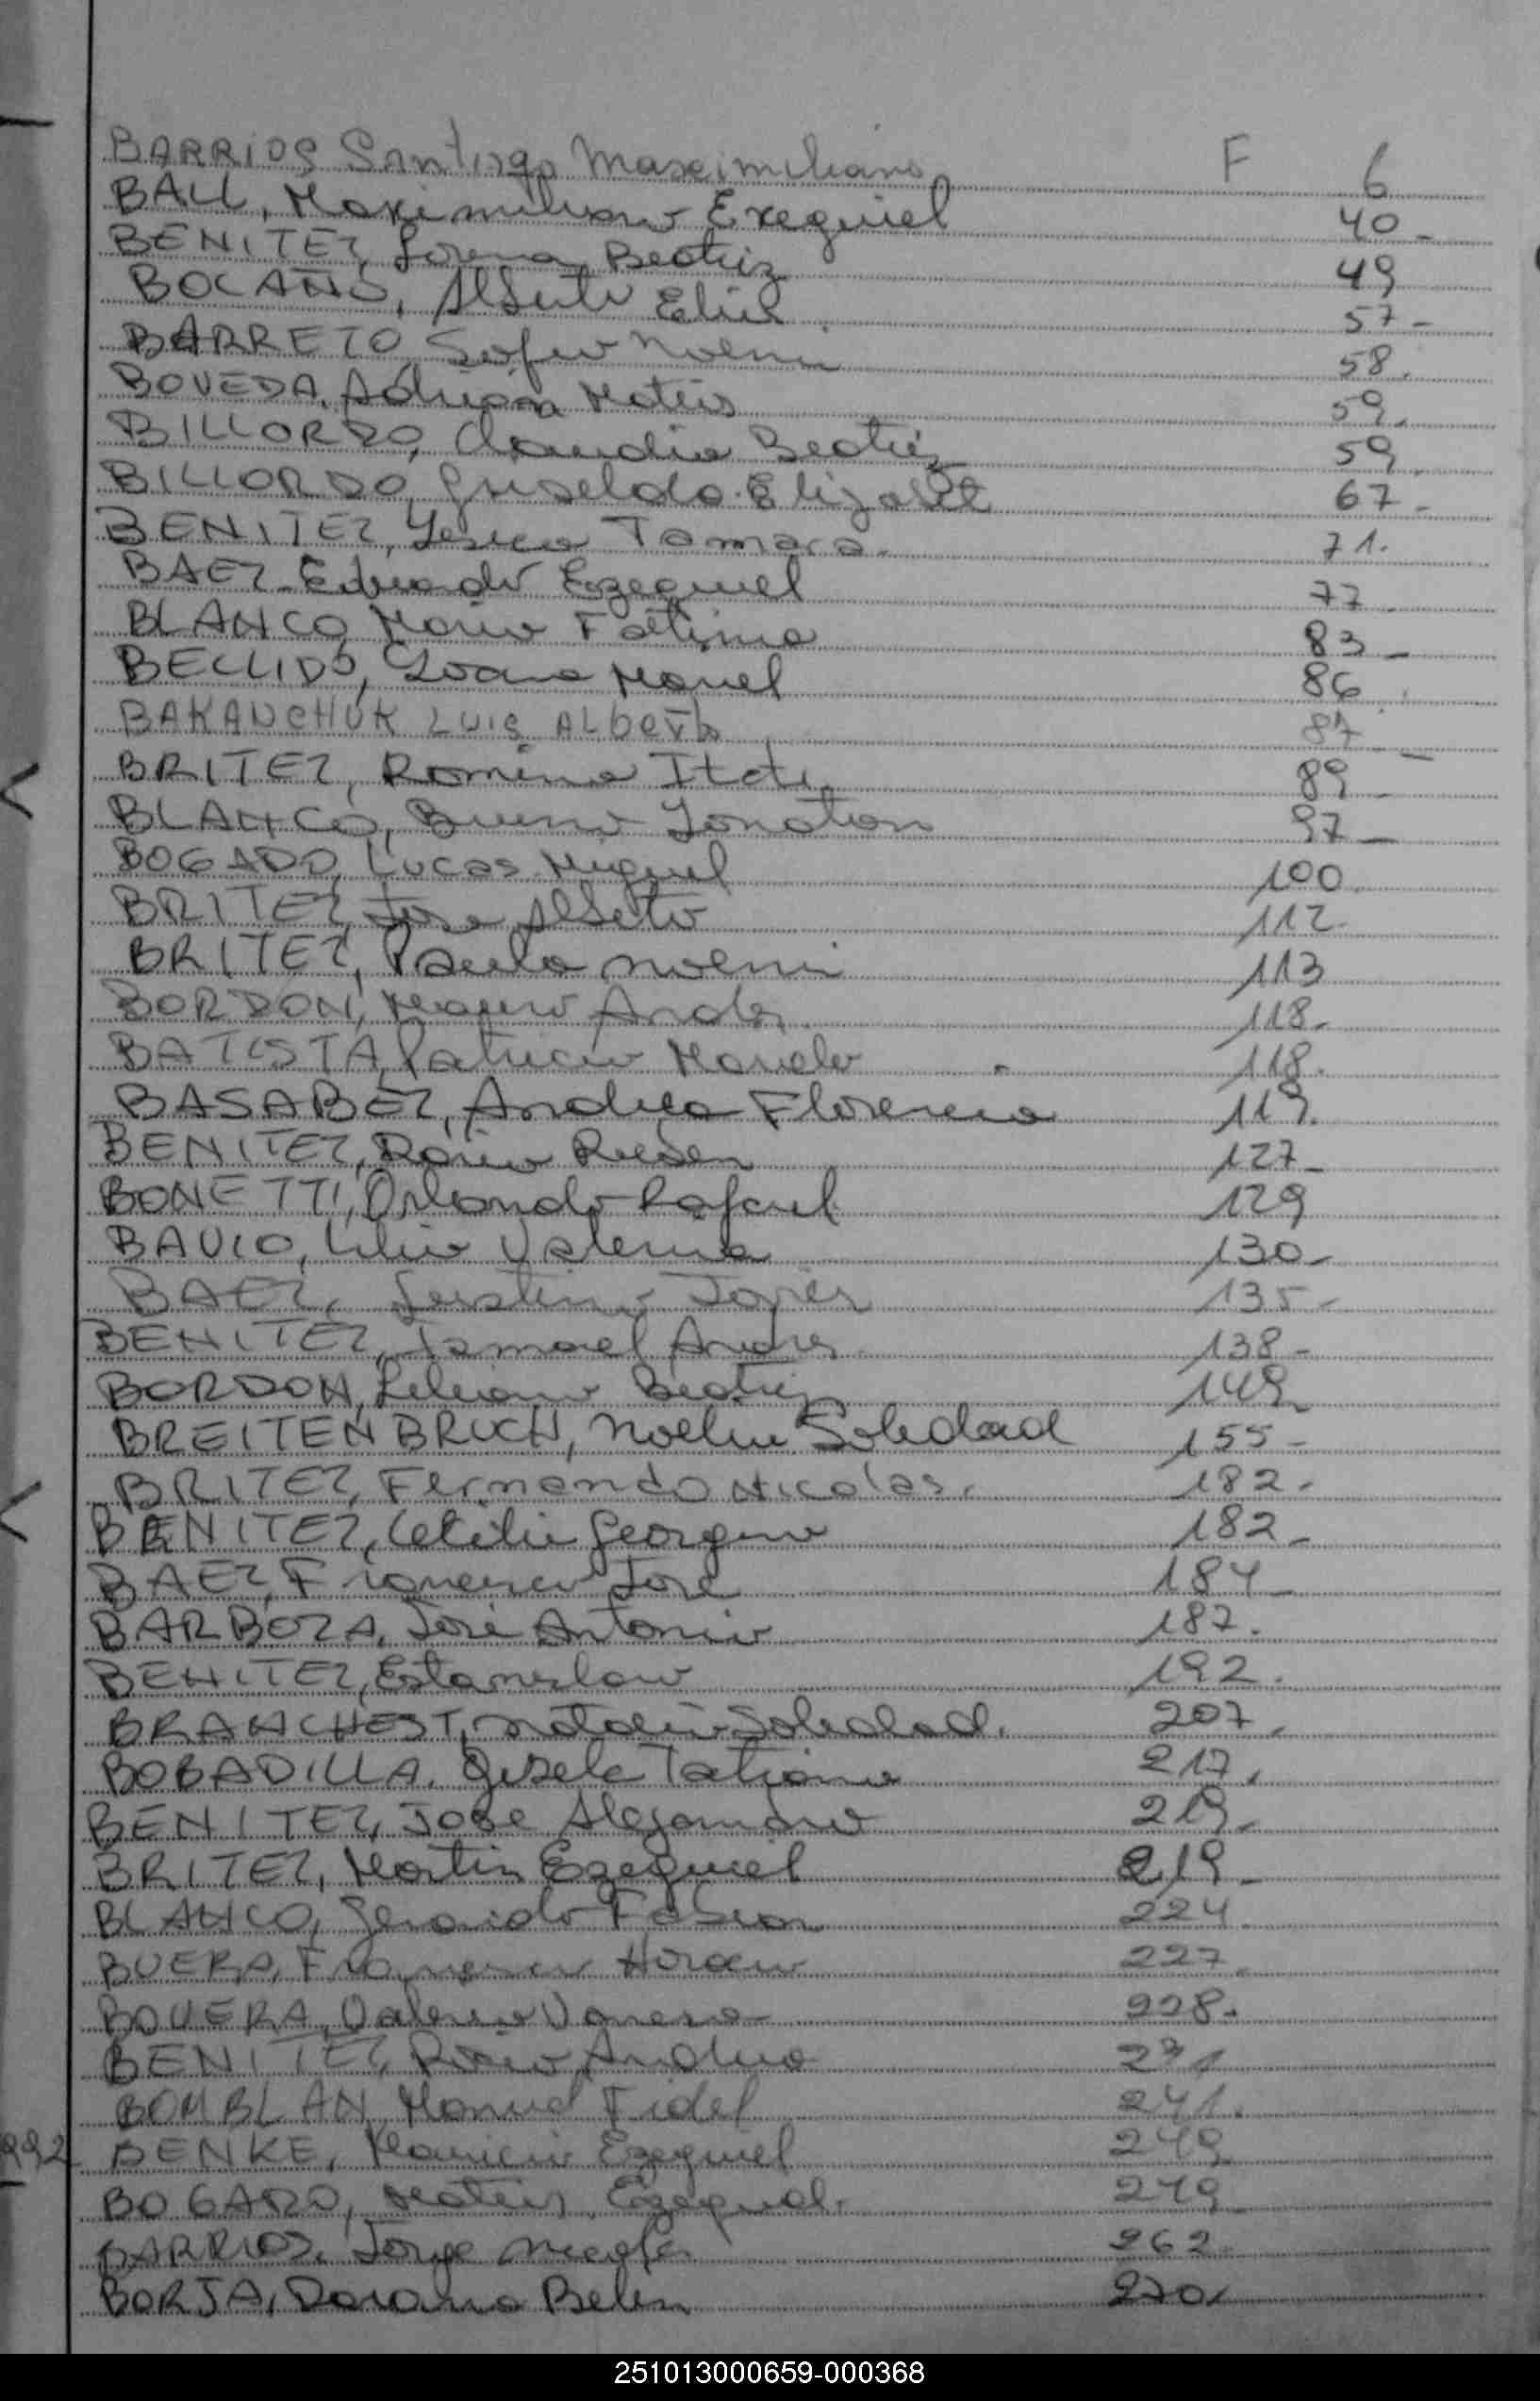 BARRIOS Santiago Maximiliano F 6
BALL, Maximiliano Exequiel 40-
BENITEZ, Lorena Beatriz 49
BOCAÑO, Alberto Elias 57-
BARRETO, Sofia Noemi 58.
BOVEDA, Adriana Matias 59.
BILLORDO, Claudia Beatriz 59.
BILLORDO, Griselda Elizabet 67-
BENITEZ, Yesica Tamara. 71.
BAEZ Eduardo Ezequiel 77-
BLANCO, Maria Fatima 83-
BELLIDO, Manuel 86.
BAKANCHUK LUIS ALbeRto 87-
BRITEZ, Romina Itati 89-
BLANCO, Bruno Jonatan 97-
BOGADO, Lucas Miguel 100.
BRITEZ, Jose Alberto 112.
BRITEZ, Paula Noemi 113
BORDON, Mauro Andres 118.
BATISTA, Patricia Mariela 118.
BASABEZ, Andrea Florencia 119.
BENITEZ, Dario Ruben 127-
BONETTI, Orlando Rafael 129
BAVIO, Lilia Valeria 130-
BAEZ, Javier 135-
BENITEZ, Ismael Andres 138-
BORDON, Liliana Beatriz 149
BREITENBRUCH, Noelia Soledad 155-
BRITEZ, Fernando Nicolas. 182.
BENITEZ, Leticia Georgina 182-
BAEZ, Francisco José 184-
BARBOZA, José Antonio 187.
BENITEZ, Estanislao 192.
BRANCHEST, Natalia Soledad. 207.
BOBADILLA, Gisela Tatiana 217.
BENITEZ, Jose Alejandro 219.
BRITEZ, Martin Ezequiel 219-
BLANCO, Gerardo Fabian 224.
BUERA, Francisco Horacio 227.
BOVERA, Valeria Vanesa 228.
BENITEZ, Rocio Andrea 231
BOMBLAN, Manuel Fidel 241.
BENKE, Mauricio Ezequiel 249
BOGADO, Matias Ezequiel. 249
BARRIOS, Jorge Nicolas 262.
BORJA, Daiana Belen 270.
251013000659-000368